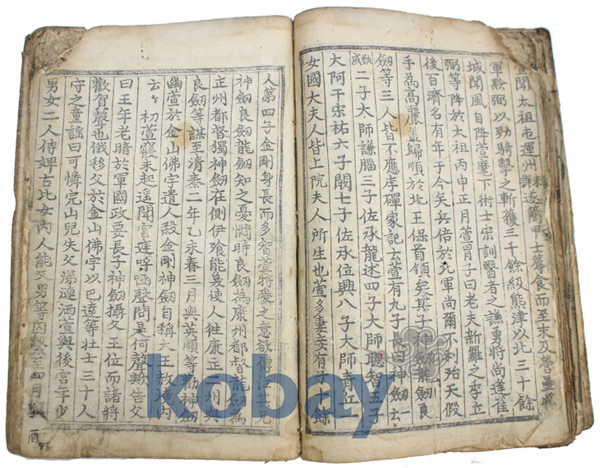 聞太祖屯運州未詳遂簡甲士蓐食而至未及營壘將
軍黔弼以勁騎擊之斬獲三千餘級熊津以北三十餘
城聞風自降萱麾下術士宗訓醫者之謙勇將尚逹雀
弼等降於太祖丙申正月萱謂子曰老夫新羅之季立
後百濟名有年于今矣兵倍於北軍尚爾不利殆天假
手為高麗盍歸順於北王保首領矣其子神劔龍劔良
劔等三人皆不應李磾家記云萱有九子長曰神劔一云
甄成二子太師謙腦三子佐承龍述四子太師聰智五子
大阿干宗祐六子闕七子佐承位興八子太師青丘一
女國大夫人皆上院夫人所生也萱多妻妾有子十餘
人第四子金剛身長而多智萱特愛之意欲傳位其兄
神劔良劔龍劔知之憂憫時良劔為康州都督龍劔為
正州都督獨神劔在側伊飡能奐使人往康正二州與
良劔等謀至清泰二年乙未春三月與英順等勸神劔
幽萱於金山佛宇遣人殺金剛神劔自稱大王赦境內
云云 初萱寢未起遥聞宮庭呼喊聲問是何聲歟告父
曰王年老暗於軍國政要長子神劔攝父王位而諸將
歡賀聲也俄移父於金山佛宇以巴達等壯士三十人
守之童謠曰可憐完山兒失父涕連洒萱與後宮年少
男女二人侍婢古比女內人能乂男等囚繫至四月
kobay